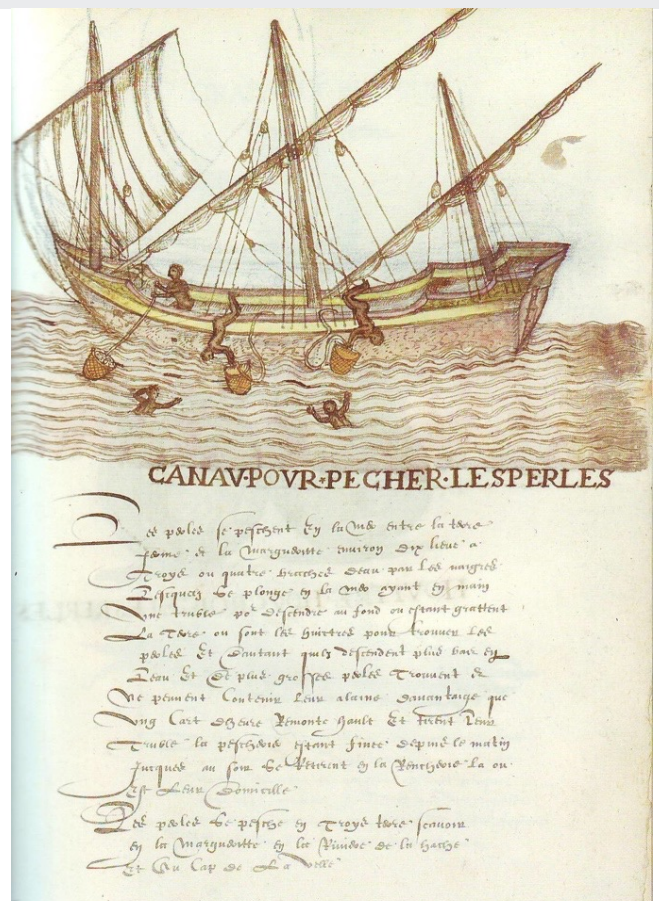 CANAV·POVR·PECHER·LES PERLES
Les perles se peschent en la mer entre la terre
ferme de la Marguerite environ dix lieue a
Troys ou quatre brasses deau par les naigres
Lesquelz se plonge en la mer ayant en main
Une truble por descendre au fond ou estant grattent
La Terre ou sont les huistres pour trouver les
perles Et dautant quilz descendent plus bas en
Leau Et de plus grosses perles Trouvent
Ne peuvent Contenir leur alaine davantaige que
Ung Cart dheure Remonte hault Et tirent leur
Truble la pescherie estant finee depuis le matin
Jusques au soir Se Retirent en la Rencherie La ou
Est Leur Domicille
Les perles Se pesche en Troys terre scavoir
en la Marguerite en la Riviere de la hache
Et Au Cap de La velle